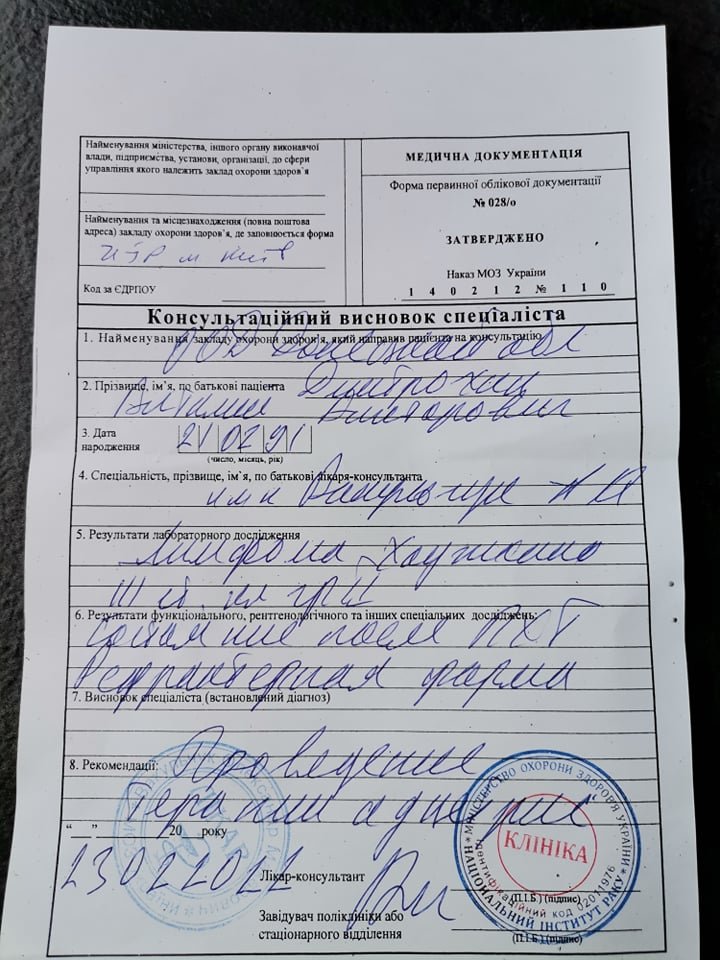 Найменування міністерства, іншого органу виконавчої
влади, підприємства, установи, організації, до сфери
управління якого належить заклад охорони здоров'я
Найменування та місцезнаходження (повна поштова
адреса) закладу охорони здоров'я, де заповнюється форма
м Київ
Код за ЄДРПОУ
МЕДИЧНА ДОКУМЕНТАЦІЯ
Форма первинної облікової документації
№ 028/о
ЗАТВЕРДЖЕНО
Наказ МОЗ України
1 4 0 2 1 2 № 1 1 0
Консультаційний висновок спеціаліста
1. Найменування закладу охорони здоров'я, який направив пацієнта на консультацію
обл
2. Прізвище, ім'я, по батькові пацієнта Димтрохин
Виталий Викторович
3. Дата
народження
21 02 91
(число, місяць, рік)
4. Спеціальність, прізвище, ім'я, по батькові лікаря-консультанта
5. Результати лабораторного дослідження
Лимфома Ходжкина
III ст. кл гр II
6. Результати функціонального, рентгенологічного та інших спеціальних досліджень:
Состояние после ПХТ
Рефрактерная форма
7. Висновок спеціаліста (встановлений діагноз)
8. Рекомендації: Проведение
терапии "адцетрис"
"__" 20 року
23 02 2022
Лікар-консультант
(П.І.Б.) (підпис)
Завідувач поліклініки або
стаціонарного відділення
(П.І.Б.) (підпис)
МІНІСТЕРСТВО ОХОРОНИ ЗДОРОВ'Я УКРАЇНИ
НАЦІОНАЛЬНИЙ ІНСТИТУТ РАКУ
Ідентифікаційний код 02011976
КЛІНІКА
ЛІКАР